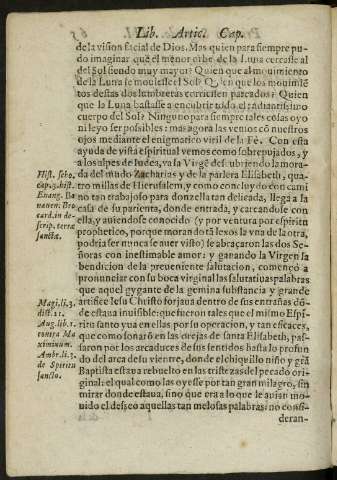 Lib. Artic. Cap.
de la vision facial de Dios. Mas quien para siempre pu-
do imaginar que el menor orbe de la Luna cercasse al
del Sol siendo muy mayor? Quien que al mouimiento
de la Luna se mouiesse el Sol? Quien que los mouimiē
tos destas dos lumbreras corriessen parcados? Quien
que la Luna bastasse a encubrir todo el radiantissimo
cuerpo del Sol? Ninguno para siempre tales cosas oyo
ni leyo ser posibles: mas agora las vemos cō nuestros
ojos mediante el enigmatico viril de la Fè. Con esta
ayuda de vista espiritual vemos como sobrepujados, y
a los alpes de Iudea, va la Virgē descubriendo la mora-
da del mudo Zacharias y de la parlera Elisabeth, qua-
tro millas de Hierusalem, y como concluydo con cami
no tan trabajoso para donzella tan delicada, llega a la
casa de su parienta, donde entrada, y careandose con
ella, y auiendose conocido (y por ventura por espiritu
prophetico, porque morando tā lexos la vna de la otra,
podria ser nunca se auer visto) se abraçaron las dos Se-
ñoras con inestimable amor: y ganando la Virgen la
bendicion de la preueniente salutacion, començò a
pronunciar con su boca virginal las salutatiuas palabras
que aquel gygante de la gemina substancia y grande
artifice Iesu Christo forjaua dentro de sus entrañas dō-
de estaua inuisible: que fueron tales que el mismo Espi-
ritu santo yua en ellas, por su operacion, y tan eficaces,
que como sonarō en las orejas de santa Elisabeth, pas-
saron por los arcaduces de sus sentidos hasta lo profun
do del arca de su vientre, donde el chiquillo niño y grā
Baptista estaua rebuelto en las tristezas del pecado ori-
ginal: el qual como las oyesse por tan gran milagro, sin
mirar donde estaua, sino que era a lo que le auian mo-
uido el desseo aquellas tan melosas palabras: no consi-
deran-
Hist. scho.
cap. 3. hist.
Euang. Bo
nauen. Bro
card. in de-
scrip. terræ
sanctæ.
Magi. li. 3.
dist. 21.
Aug. lib. 1.
contra Ma
ximinum.
Ambr. li. 2.
de Spiritu
sancto.